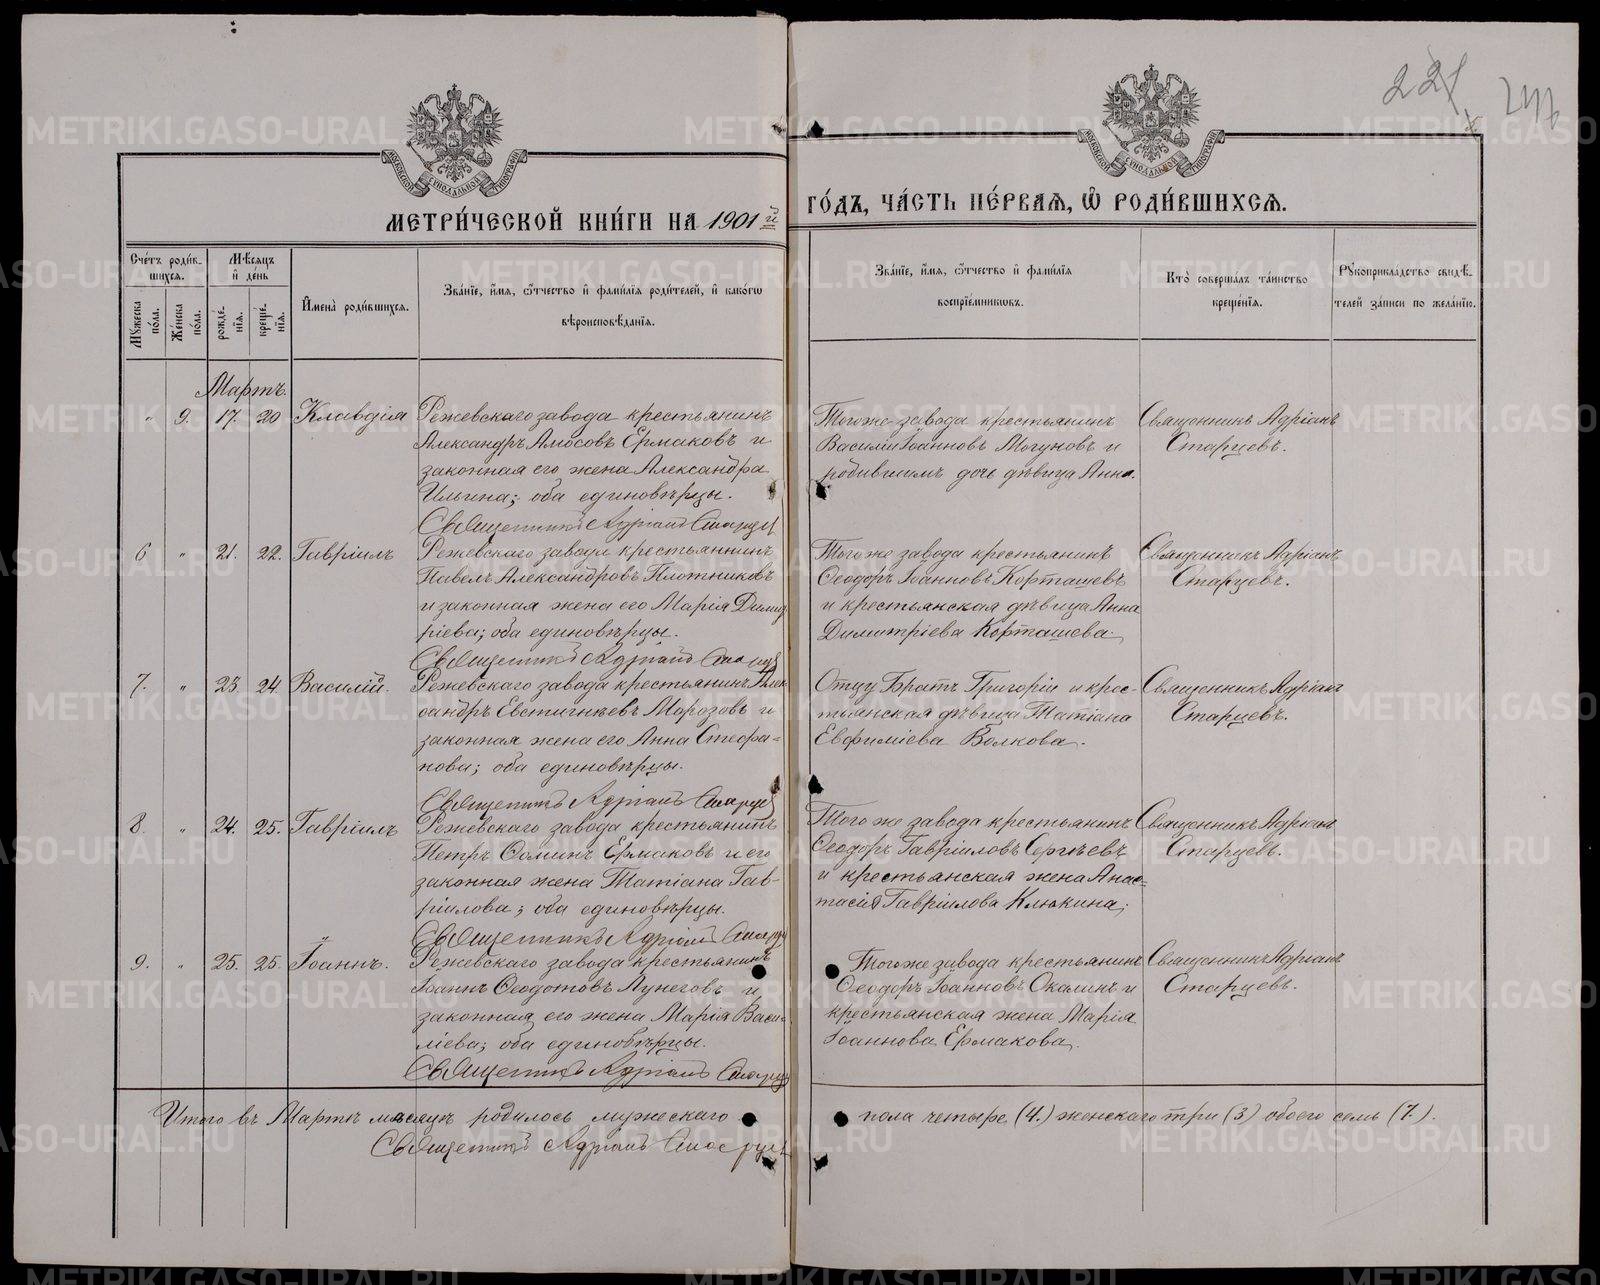 221 246
МОСКОВСКОЙ СУНОДАЛЬНОЙ ТИПОГРАФІИ
МОСКОВСКОЙ СУНОДАЛЬНОЙ ТИПОГРАФІИ
МЕТРИ́ЧЕСКОЙ КНИ́ГИ НА 1901й ГО́ДЪ, ЧА́СТЬ ПЕ́РВАЯ, Ѡ РОДИ́ВШИХСЯ.
Сче́тъ роди́в-
шихся.
Мѣ́сяцъ
и де́нь
Мꙋ́жеска по́ла.
Же́нска по́ла.
рожде́-
нія.
креще́-
нія.
Имена̀ роди́вшихся.
Зва́ніе, и́мя, ѻ҆́тчество и фами́лія роди́телей, и како́гѡ
вѣроисповѣ́данія.
Зва́ніе, и́мя, ѻ҆́тчество и фами́лія
воспріе́мникѡвъ.
Кто̀ соверша́лъ та́инство
креще́нія.
Рꙋкоприкла́дство свидѣ́-
телей за́писи по жела́нію.
Мартъ.
" 9. 17. 20 Клавдія
Режевскаго завода крестьянинъ
Александръ Амосовъ Ермаковъ и
законная его жена Александра
Ильина; оба единовѣрцы.
Священникъ Адріанъ Старцев
Тогоже завода крестьянин
Василій Іоанновъ Могуновъ и
родившимъ дочь дѣвица Анна.
Священникъ Адріанъ
Старцевъ.
6 " 21. 22. Гавріилъ
Режевскаго завода крестьянинъ
Павелъ Александровъ Плотниковъ
и законная жена его Марія Димит
ріева; оба единовѣрцы.
Священникъ Адріанъ Старце
Тогоже завода крестьянинъ
Ѳеодоръ Іоанновъ Корташевъ
и крестьянская дѣвица Анна
Димитріева Корташева.
Священникъ Адріанъ
Старцевъ.
7. " 23. 24. Василій.
Режевскаго завода крестьянинъ Алек
сандръ Евстигнѣевъ Морозовъ и
законная жена его Анна Стефа=
нова; оба единовѣрцы.
Священникъ Адріанъ Старцев
Отцу Братъ Григорій и крес-
тьянская дѣвица Татіана
Евфиміева Волкова.
Священникъ Адріанъ
Старцевъ.
8. " 24. 25. Гавріилъ
Режевскаго завода крестьянинъ
Петръ Ѳоминъ Ермаковъ и его
законная жена Татіана Гав-
ріилова; оба единовѣрцы.
Священникъ Адріанъ Старц
Того же завода крестьянинъ
Ѳеодоръ Гавріиловъ Сергѣевъ
и крестьянская жена Анас=
тасія Гавріилова Клюкина.
Священникъ Адріанъ
Старцевъ.
9. " 25. 25. Іоаннъ.
Режевскаго завода крестьянинъ
Іоаннъ Ѳеодотовъ Лунеговъ и
законная его жена Марія Васи-
ліева; оба единовѣрцы.
Священникъ Адріанъ Старц
Тогоже завода крестьянинъ
Ѳеодоръ Іоанновъ Окалинъ и
крестьянская жена Марія
Іоаннова Ермакова.
Священникъ Адріанъ
Старцевъ.
Итого въ Мартѣ мѣсяцѣ родилось мужескаго пола четыре (4.) женскаго три (3) обоего семь (7.).
Священникъ Адріанъ Старцев
METRIKI.GASO-URAL.RU